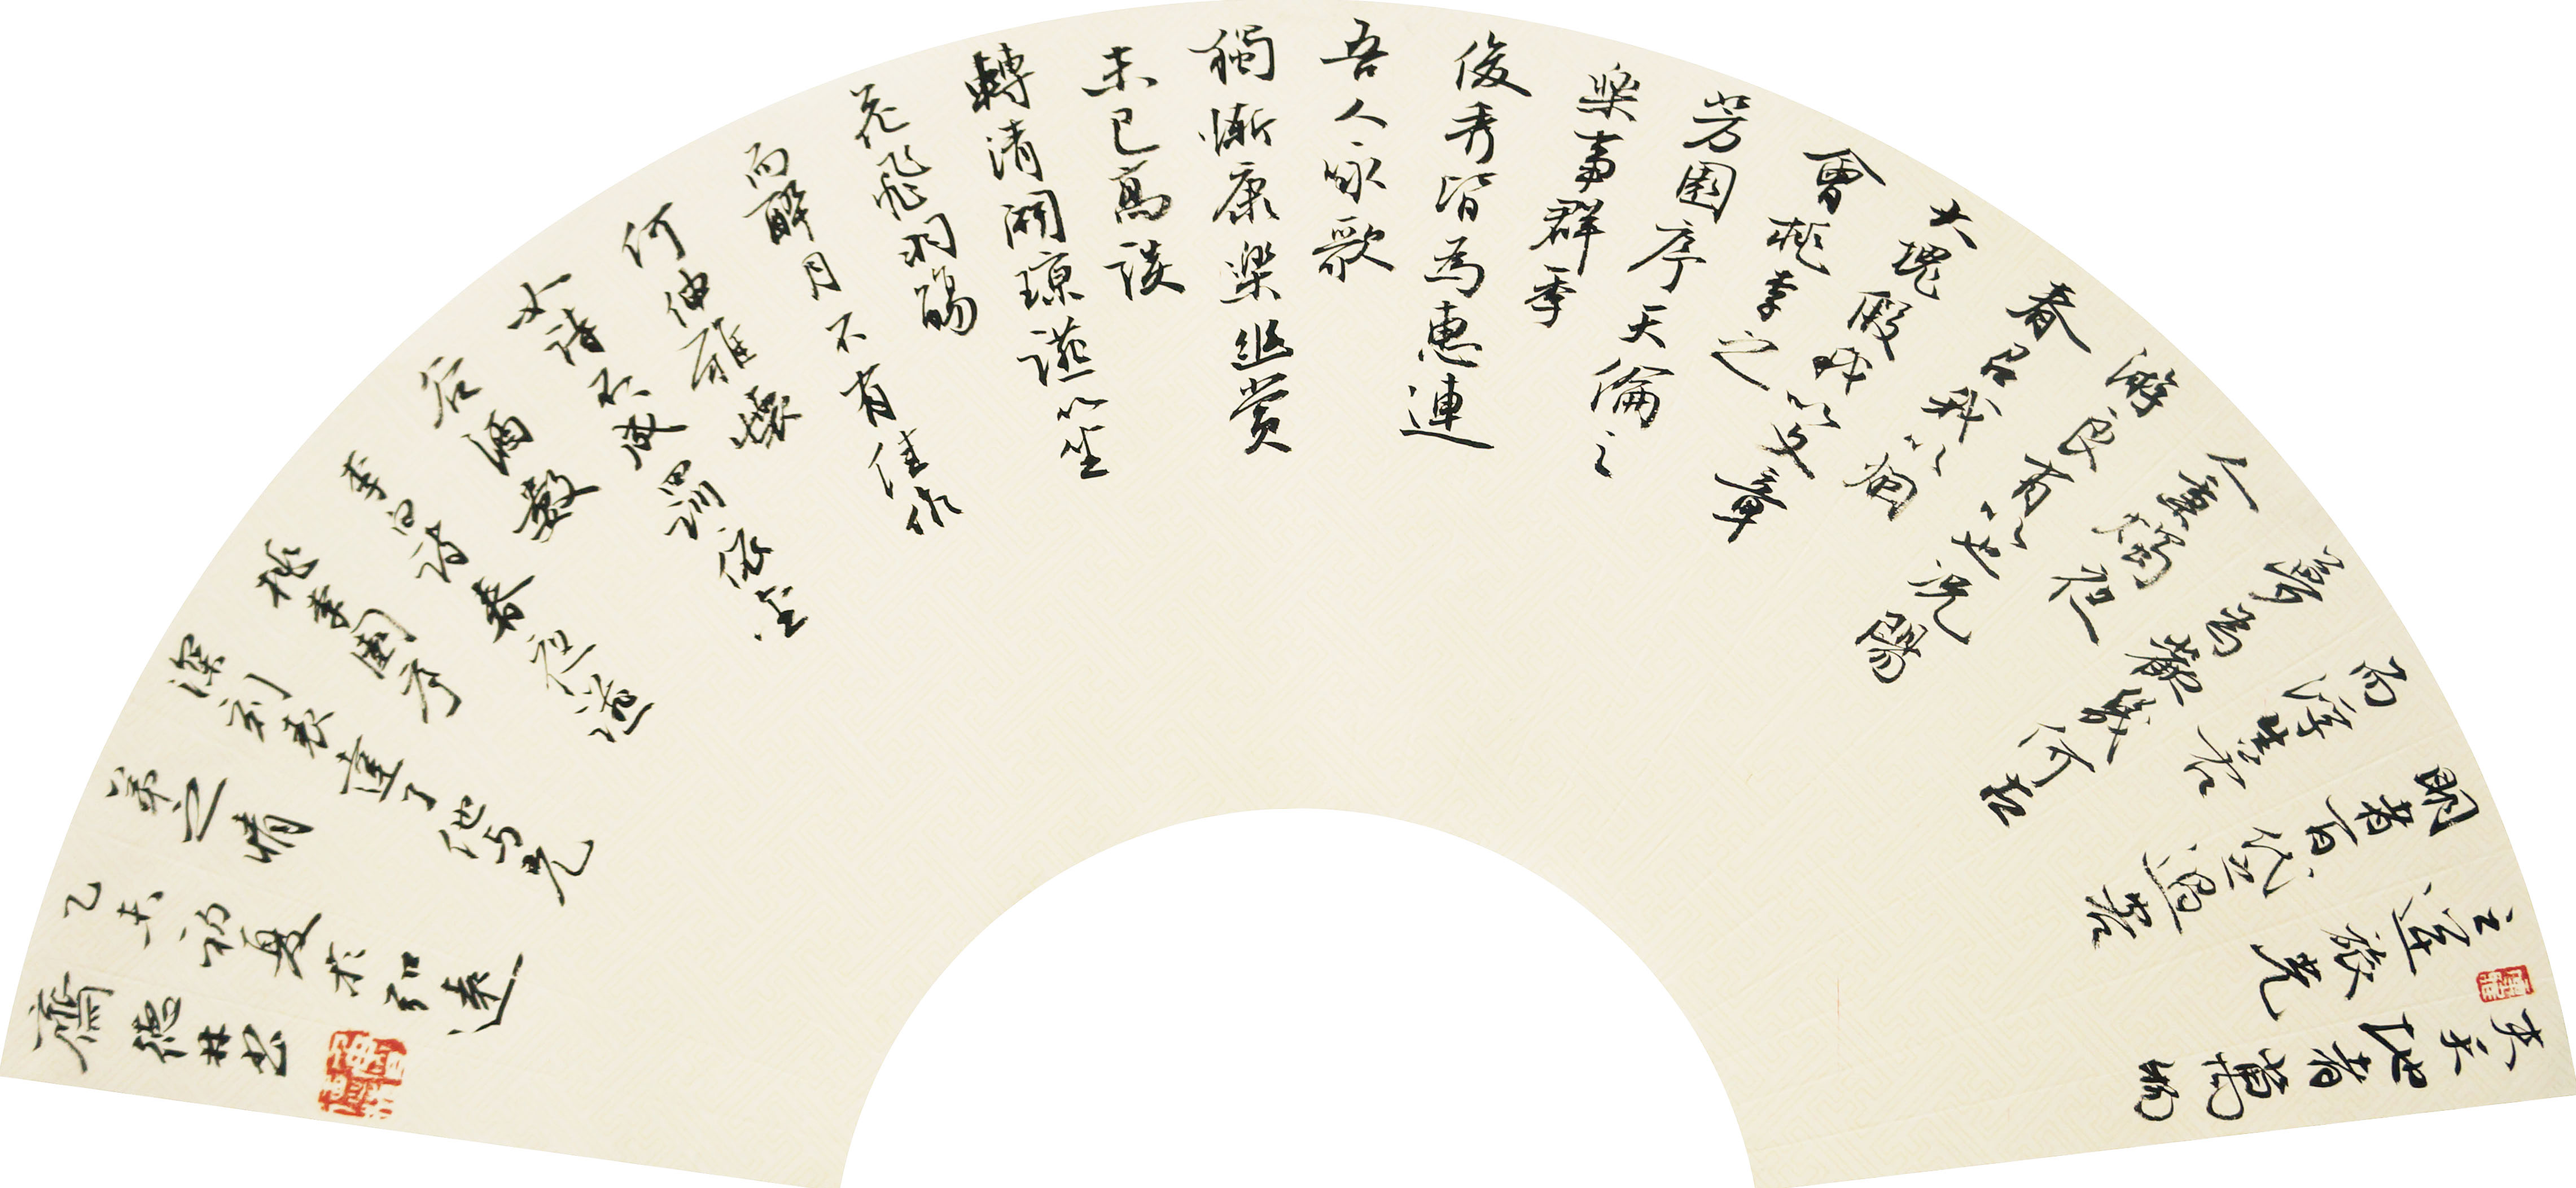 夫天地者萬物
之逆旅光
明者百代過客
而浮生若
夢為歡幾何古
人秉燭夜
游良有以也況陽
春召我以烟
大塊假我以文章
會桃李之
芳園序天倫之
樂事群季
俊秀皆為惠連
吾人詠歌
獨慚康樂幽賞
未已高談
轉清開瓊筵以坐
花飛飛羽觴
而醉月不有佳作
何伸雅懷
如詩不成罰依金
谷酒數
李白詩春夜宴
桃李園序
深刻表達了他與兄
弟之情
乙未初夏於弘達
齋德林書